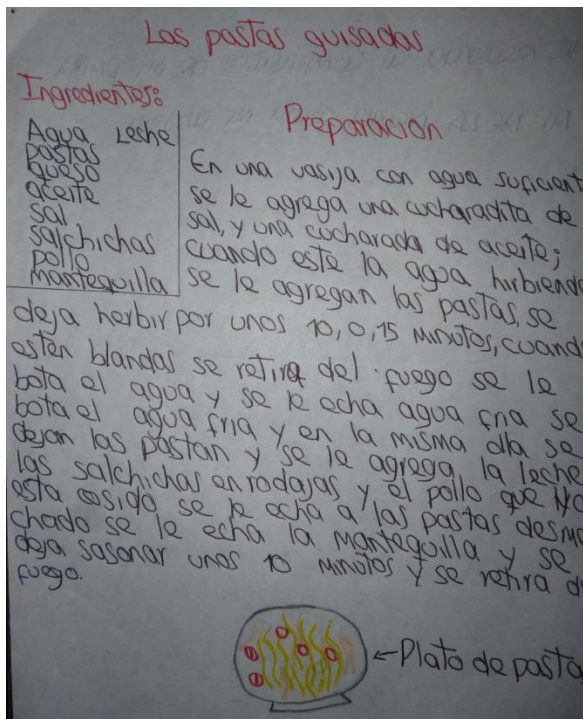 Las pastas guisadas
Ingredientes:
Agua Leche
pastas
queso
aceite
sal
salchichas
pollo
mantequilla
Preparacion
En una vasija con agua suficient
se le agrega una cucharadita de
sal, y una cucharada de aceite;
cuando este la agua hirbiend
se le agregan las pastas, se
deja herbir por unos 10, 0, 15 minutos, cuand
esten blandas se retira del fuego se le
bota el agua y se le echa agua fria se
bota el agua fria y en la misma olla se
dejan las pastan y se le agrega la leche
las salchichas en rodajas y el pollo que ya
esta cosido se le echa a las pastas desme
chado se le echa la mantequilla y se
deja sasonar unos 10 minutos y se retira d
fuego.
←Plato de pasta